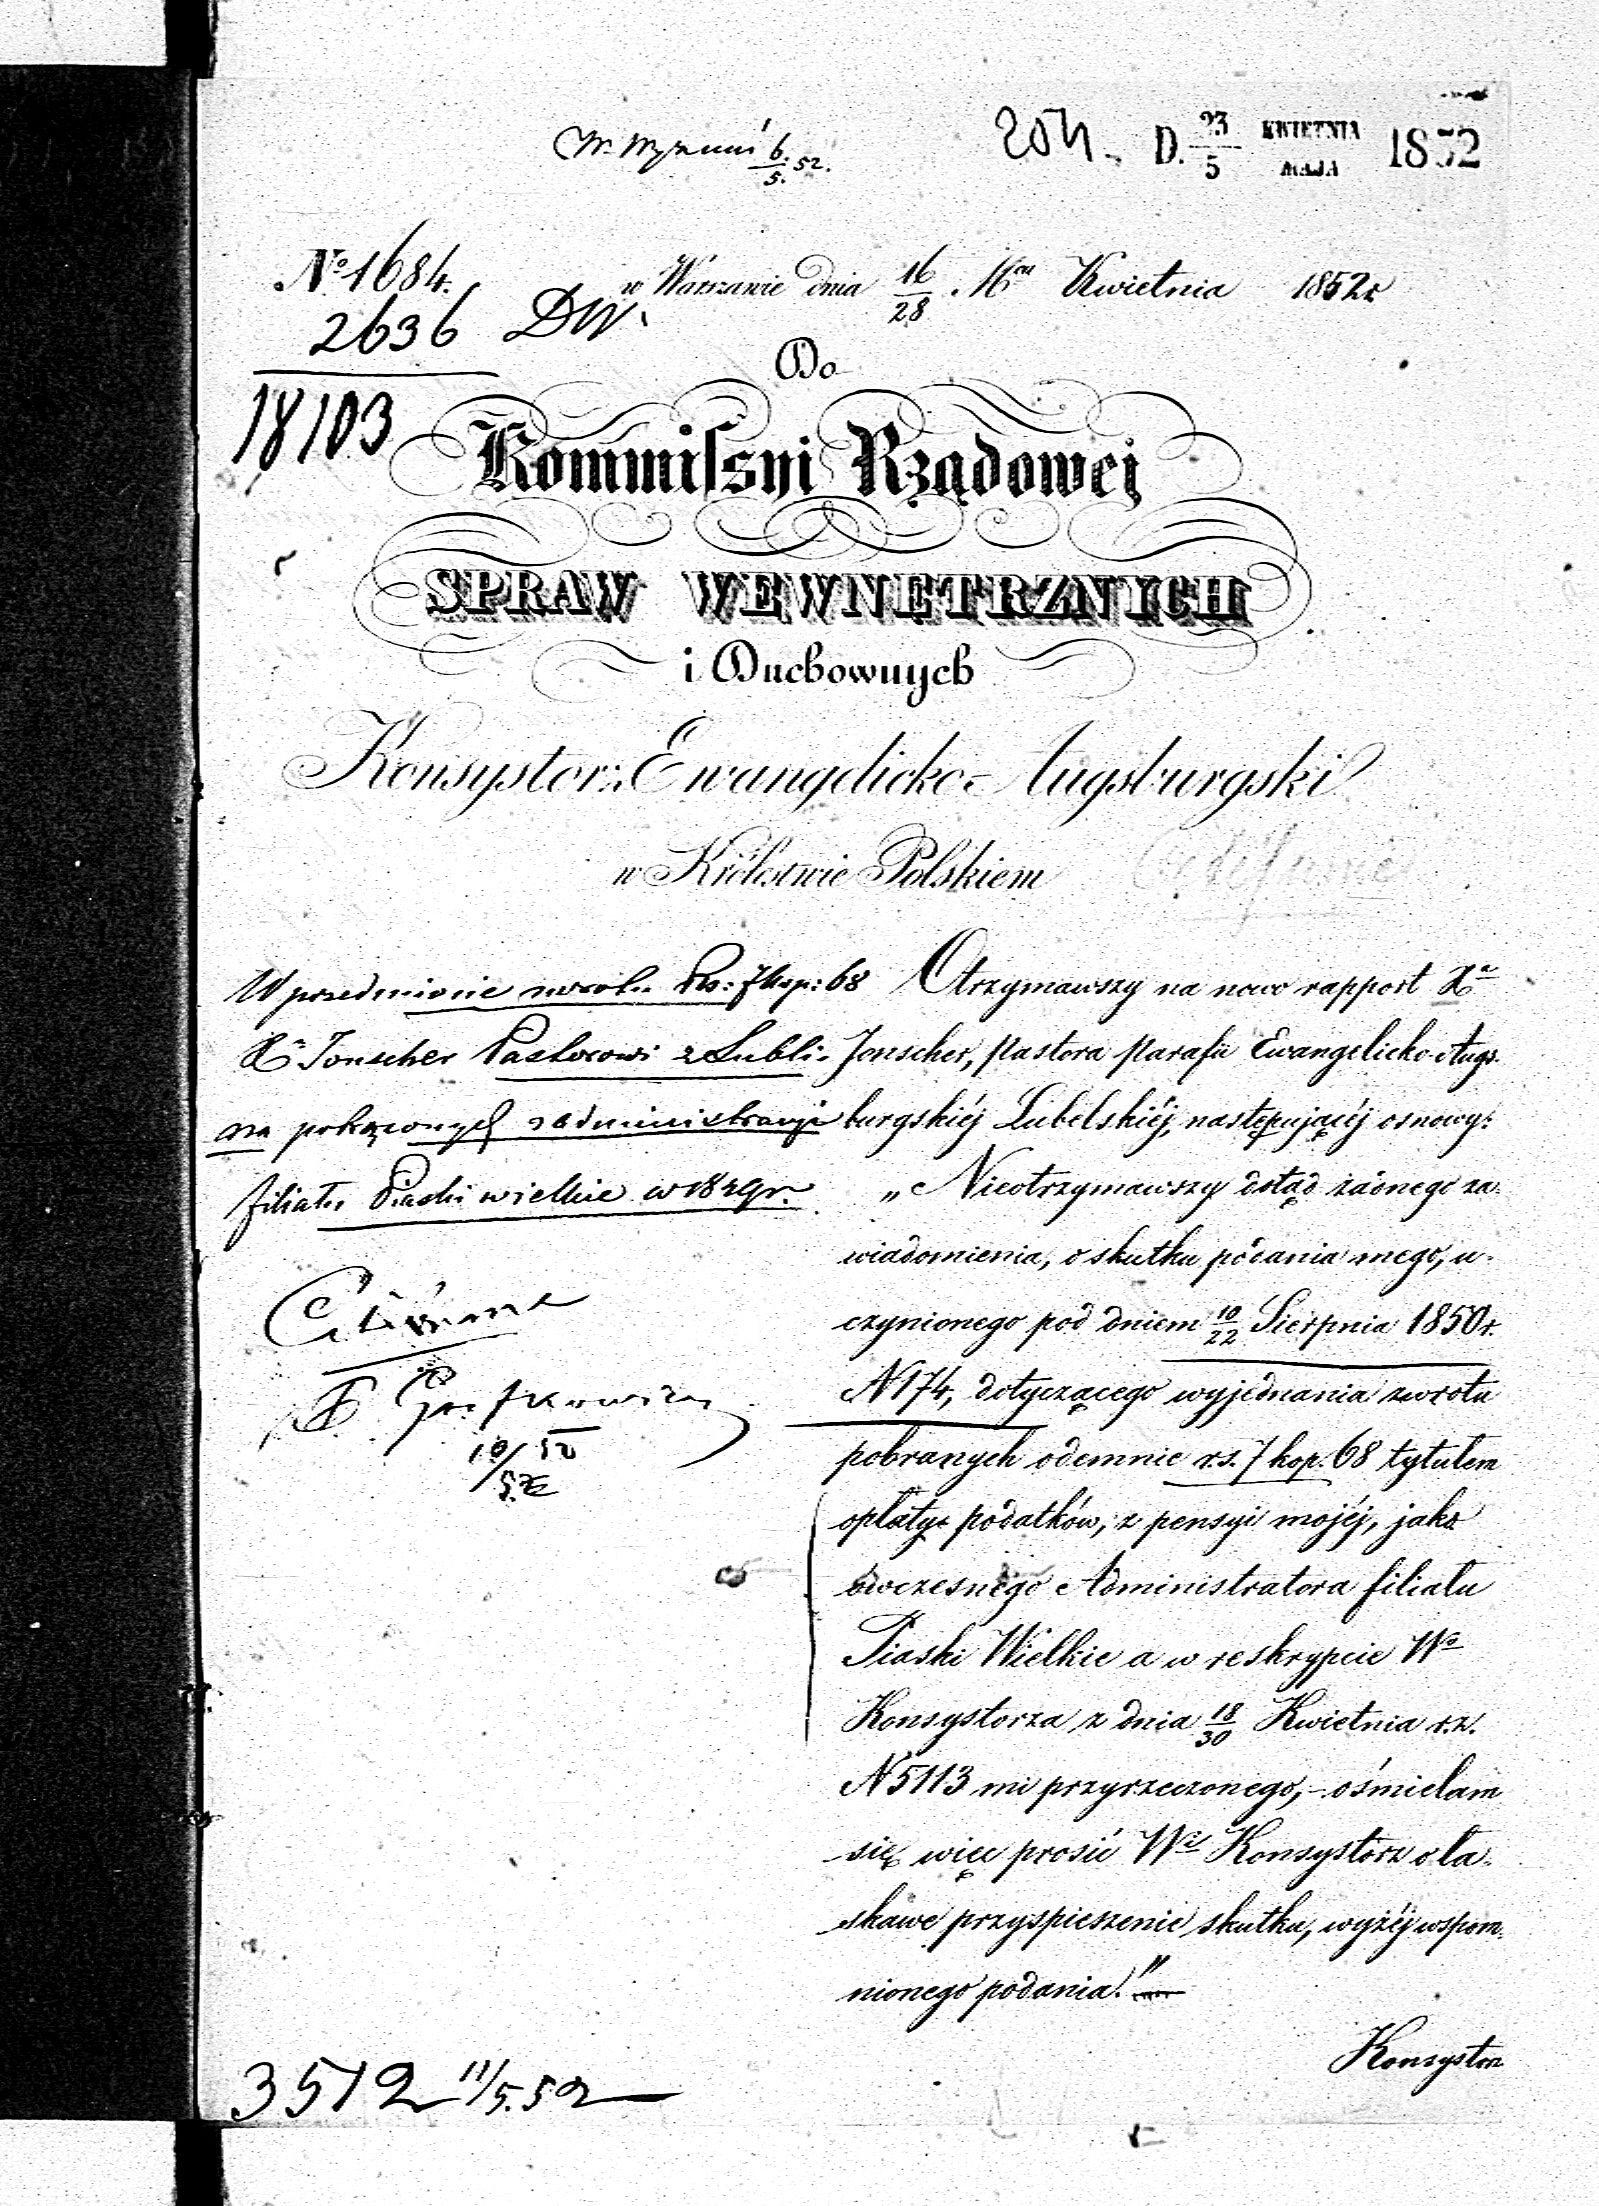 6/5. 52.
204. D. 23/5 KWIETNIA MAJA 1852
№ 1684.
w Warszawie dnia 16/28 Mca Kwietnia 1852 r.
2636 DW.
18103
Do
Kommissyi Rządowej
SPRAW WEWNĘTRZNYCH
i Duchownych
Konsystorz Ewangelicko-Augsburgski
w Królestwie Polskiem
W przedmiocie zwrotu Rs: 7 kop: 68
Xu Jonscher Pastorowi z Lubli-
na pobranych z administracyi
filiału Piaski wielkie w 1849 r.
10/5 52
Otrzymawszy na nowo rapport Xa
Jonscher, pastora parafii Ewangelicko-Augs-
burgskiéj Lubelskiéj, następującéj osnowy:
„Nieotrzymawszy dotąd żadnego za-
wiadomienia, o skutku podania mego, u-
czynionego pod dniem 10/22 Sierpnia 1850 r.
N 174, dotyczącego wyjednania zwrotu
pobranych odemnie rs. 7 kop. 68 tytułem
opłaty podatków, z pensyi mojéj, jako
ówczesnego Administratora filiału
Piaski Wielkie a w reskrypcie Wo
Konsystorza z dnia 18/30 Kwietnia r.z.
N 5113 mi przyrzeczonego, – ośmielam
się więc prosić Wi Konsystorz o ła-
skawe przyspieszenie skutku, wyżéj wspom-
nionego podania."
Konsystorz
3512 11/5. 52